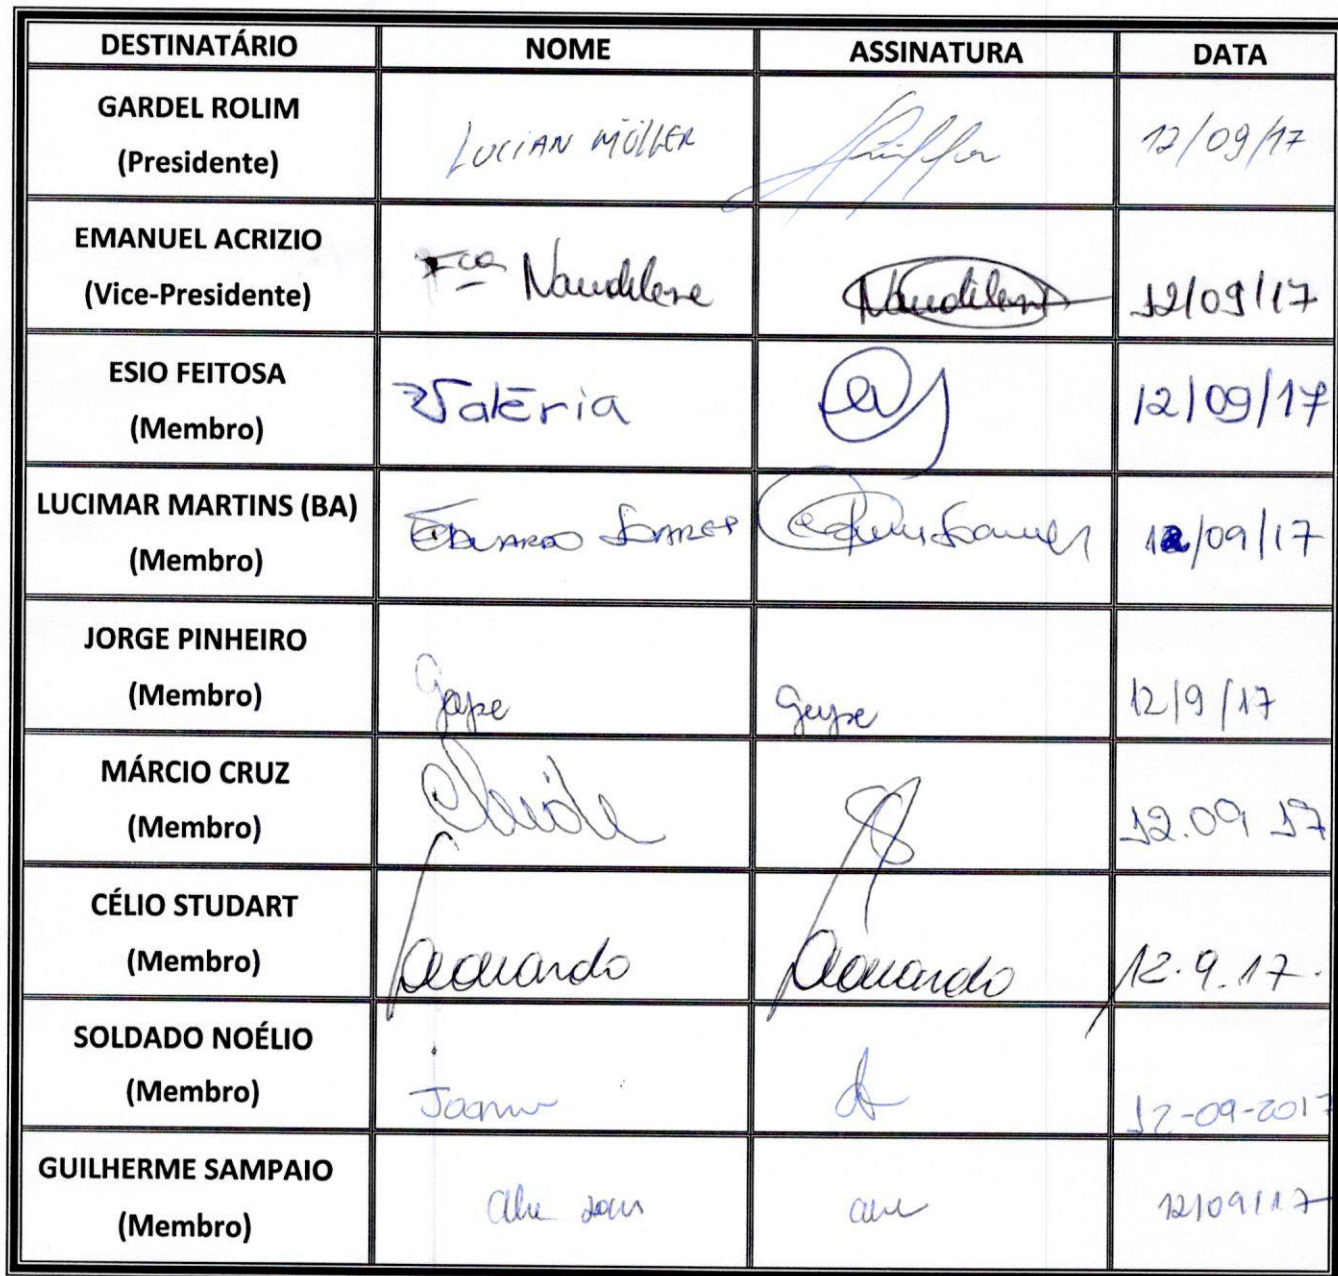 DESTINATÁRIO NOME ASSINATURA DATA
GARDEL ROLIM
(Presidente)
LUCIAN MÖLLER 12/09/17
EMANUEL ACRIZIO
(Vice-Presidente)
Fca Naudilene Naudilene 12/09/17
ESIO FEITOSA
(Membro)
Valéria 12/09/17
LUCIMAR MARTINS (BA)
(Membro)
EDUARDO SOARES 12/09/17
JORGE PINHEIRO
(Membro)
12/9/17
MÁRCIO CRUZ
(Membro)
12.09 17
CÉLIO STUDART
(Membro)
Leonardo Leonardo 12.9.17.
SOLDADO NOÉLIO
(Membro)
12-09-2017
GUILHERME SAMPAIO
(Membro)
12/09/17